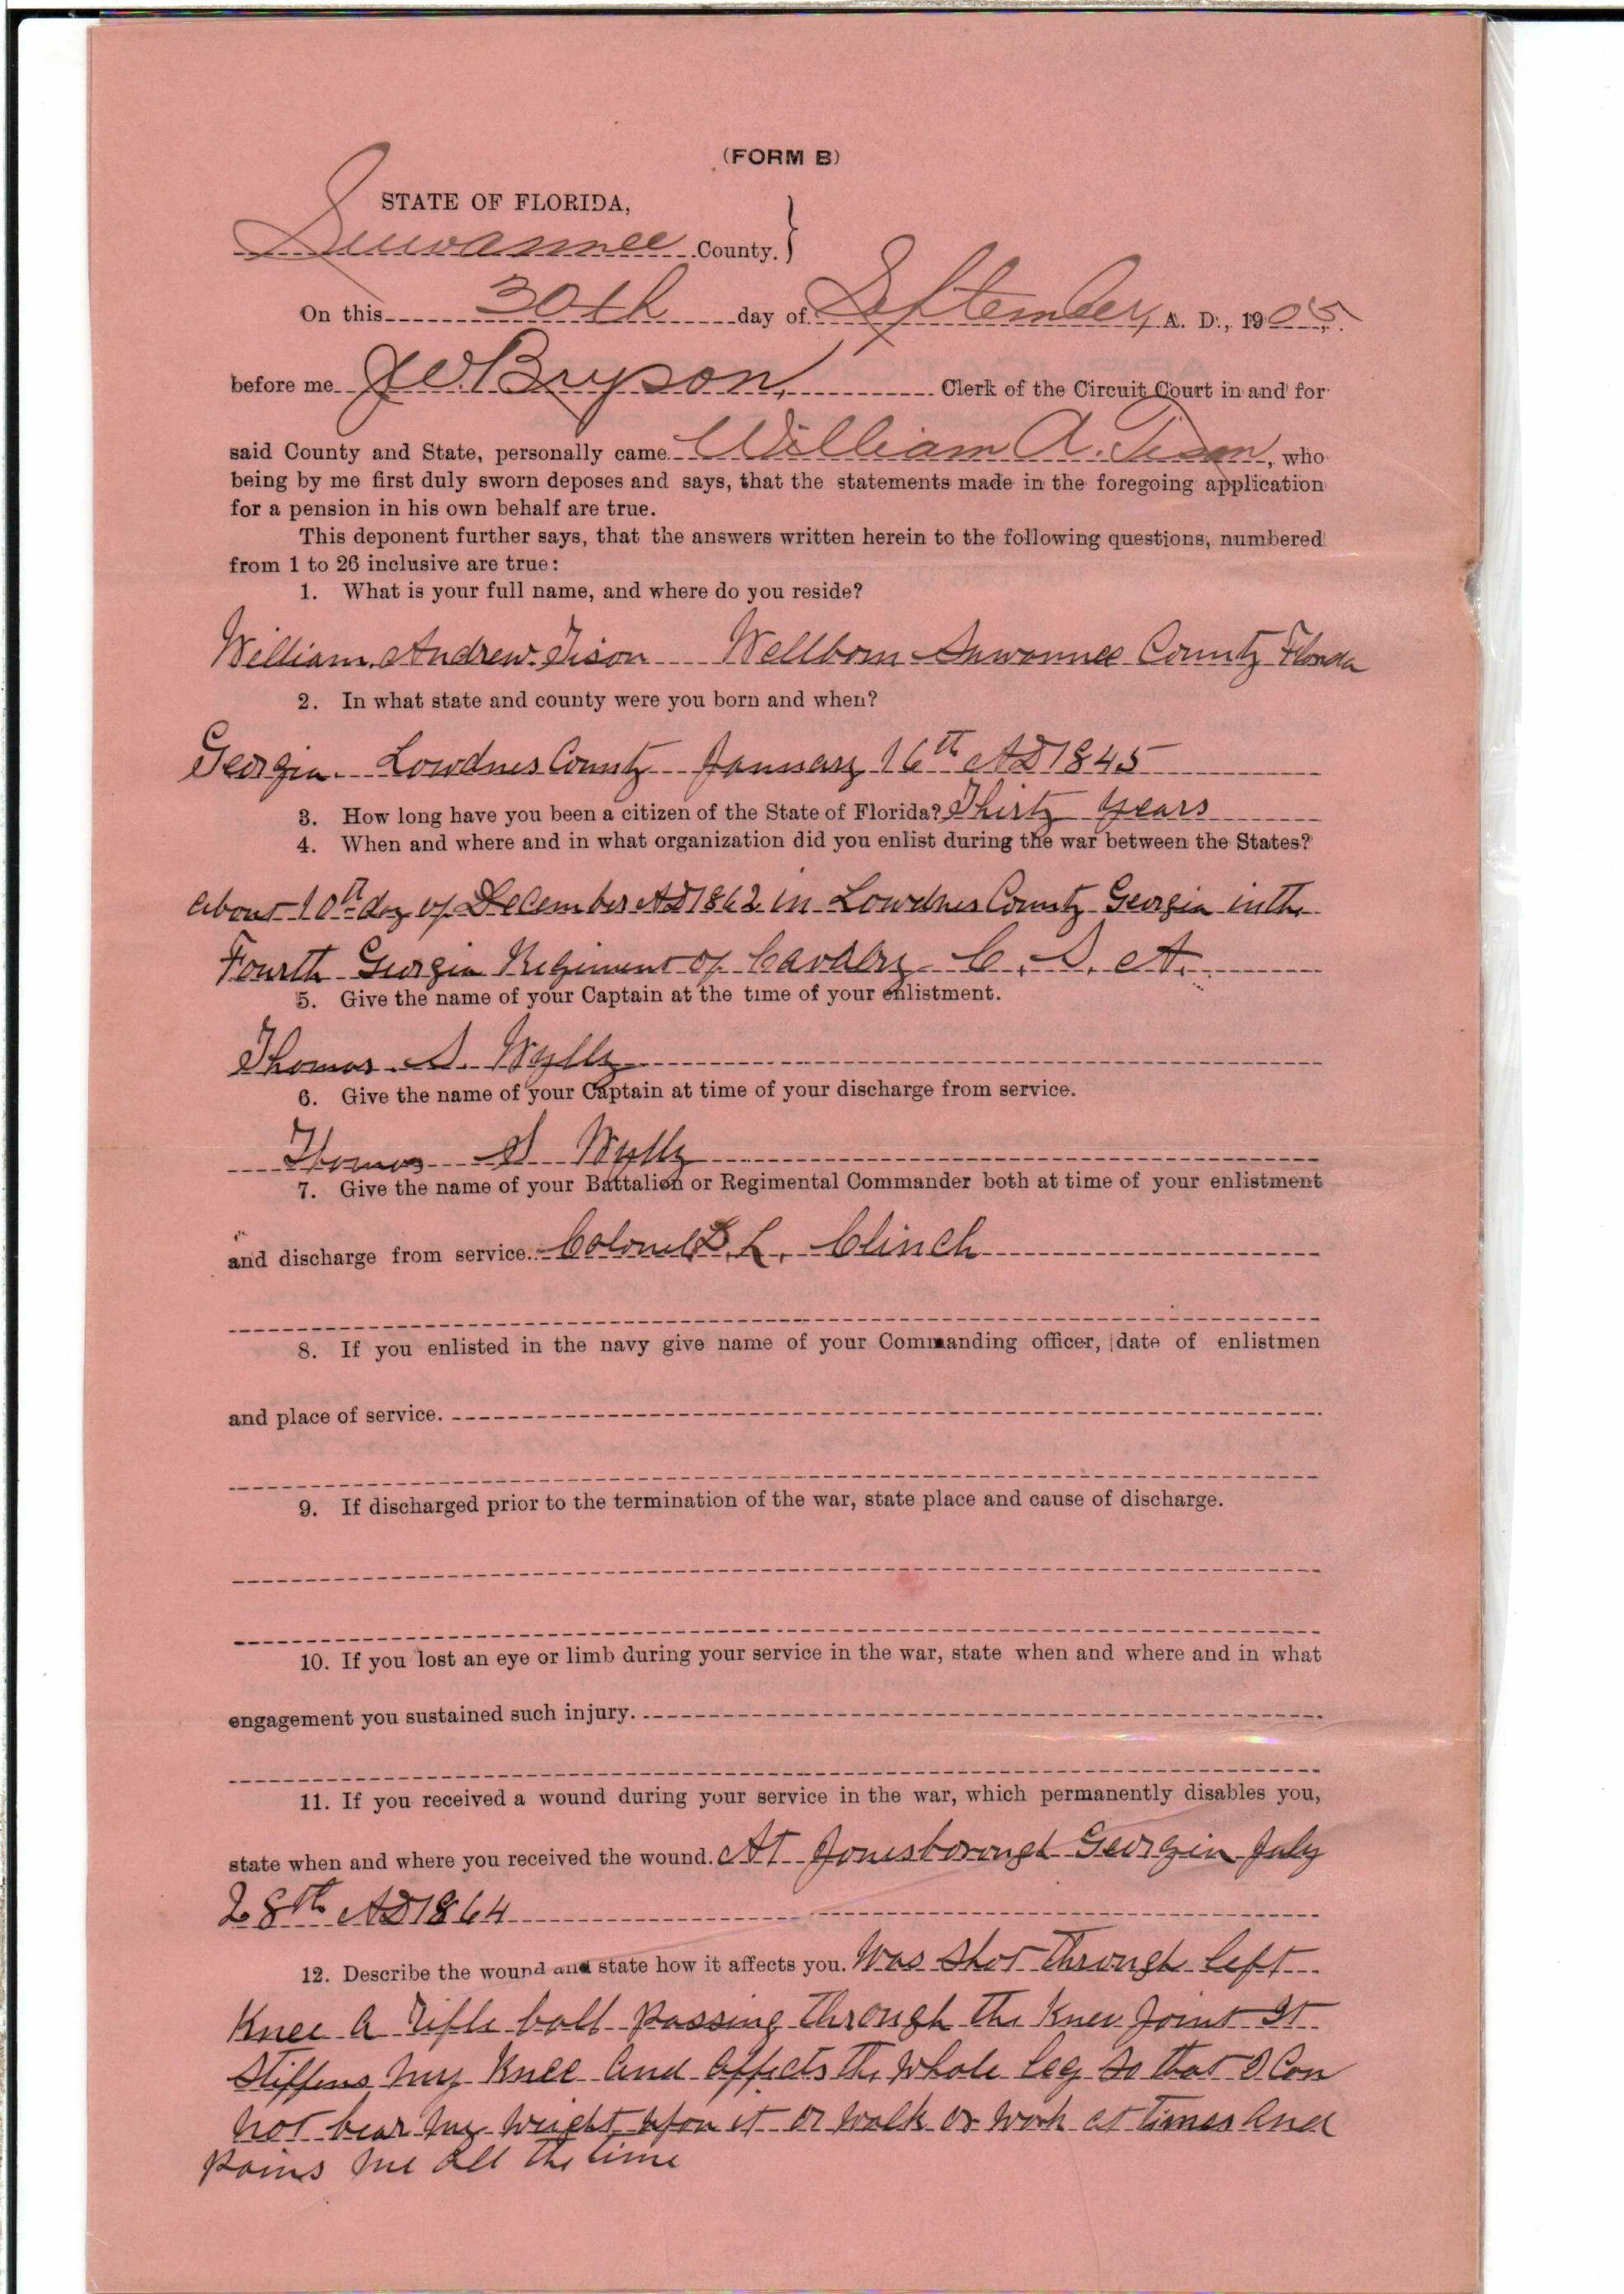 (FORM B)
STATE OF FLORIDA,
Suwannee County. }
On this 30th day of September, A. D., 1905.
before me J W. Bryson, Clerk of the Circuit Court in and for
said County and State, personally came William A. Tison, who
being by me first duly sworn deposes and says, that the statements made in the foregoing application
for a pension in his own behalf are true.
This deponent further says, that the answers written herein to the following questions, numbered
from 1 to 26 inclusive are true:
1. What is your full name, and where do you reside?
William Andrew Tison Wellborn Suwannee County Florida
2. In what state and county were you born and when?
Georgia Lowdnes County January 16th AD 1845
3. How long have you been a citizen of the State of Florida? Thirty years
4. When and where and in what organization did you enlist during the war between the States?
about 10th day of December AD 1862 in Lowdnes County Georgia in the
Fourth Georgia Regiment of Cavalry C. S. A.
5. Give the name of your Captain at the time of your enlistment.
Thomas S. Wylly
6. Give the name of your Captain at time of your discharge from service.
Thomas S Wylly
7. Give the name of your Battalion or Regimental Commander both at time of your enlistment
and discharge from service. Colonel D. L. Clinch
8. If you enlisted in the navy give name of your Commanding officer, date of enlistmen
and place of service.
9. If discharged prior to the termination of the war, state place and cause of discharge.
10. If you lost an eye or limb during your service in the war, state when and where and in what
engagement you sustained such injury.
11. If you received a wound during your service in the war, which permanently disables you,
state when and where you received the wound. At Jonesborough Georgia July
28th AD 1864
12. Describe the wound and state how it affects you. Was shot through left
Knee a rifle ball passing through the Knee Joint It
stiffens my Knee and affects the whole leg so that I Can
not bear my weight upon it or walk or work at times and
pains me all the time